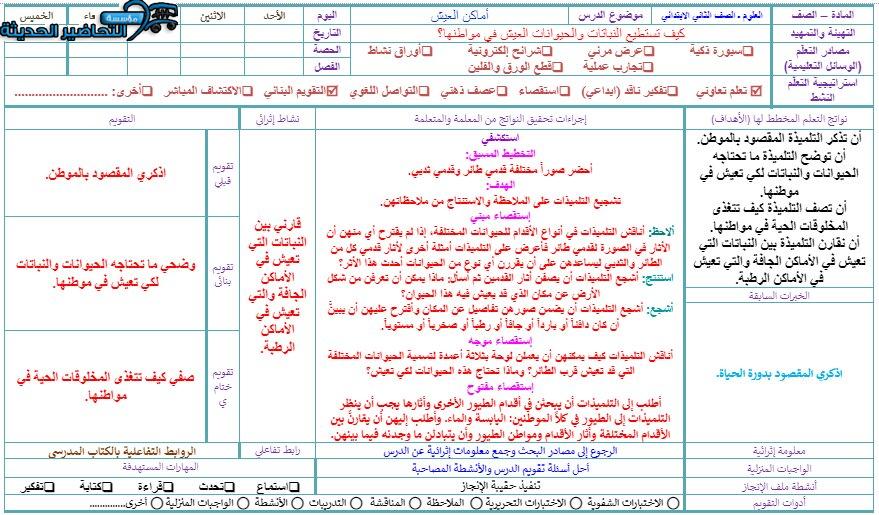 المادة – الصف
العلوم ـ الصف الثاني الابتدائي
موضوع الدرس
أماكن العيش
اليوم
الأحد
الاثنين
عاء
الخميس
مؤسسة
التحاضير الحديثة
التهيئة والتمهيد
كيف تستطيع النباتات والحيوانات العيش في مواطنها؟
التاريخ
مصادر التعلم
(الوسائل التعليمية)
سبورة ذكية
عرض مرئي
شرائح إلكترونية
أوراق نشاط
تجارب عملية
قطع الورق والفلين
الحصة
الفصل
استراتيجية التعلم
النشط
تعلم تعاوني
تفكير ناقد (ابداعي)
استقصاء
عصف ذهني
التواصل اللغوي
التقويم البنائي
الاكتشاف المباشر
أخرى: ..........................
نواتج التعلم المخطط لها (الأهداف)
إجراءات تحقيق النواتج من المعلمة والمتعلمة
نشاط إثرائي
التقويم
أن تذكر التلميذة المقصود بالموطن.
أن توضح التلميذة ما تحتاجه
الحيوانات والنباتات لكي تعيش في
موطنها.
أن تصف التلميذة كيف تتغذى
المخلوقات الحية في موطنها.
أن نقارن التلميذة بين النباتات التي
تعيش في الأماكن الجافة والتي تعيش
في الأماكن الرطبة.
الخبرات السابقة
اذكري المقصود بدورة الحياة.
استكشفي
التخطيط المسبق:
أحضر صوراً مختلفة قدمي طائر وقدمي ثديي.
الهدف:
تشجيع التلميذات على الملاحظة والاستنتاج من ملاحظاتهن.
إستقصاء مبني
ألاحظ: أناقش التلميذات في أنواع الأقدام للحيوانات المختلفة، إذا لم يقترح أي منهن أن
الأثار في الصورة لقدمي طائر فأعرض على التلميذات أمثلة أخرى لأثار قدمي كل من
الطائر والثديي ليساعدهن على أن يقررن أي نوع من الحيوانات أحدث هذا الأثر؟
استنتج: أشجع التلميذات أن يصفن أثار القدمين ثم أسأل: ماذا يمكن أن تعرفن من شكل
الأرض عن مكان الذي قد يعيش فيه هذا الحيوان؟
أشجع: أشجع التلميذات أن يضمن صورهن تفاصيل عن المكان وأقترح عليهن أن يبينَّ
أن كان دافئاً أو بارداً أو جافاً أو رطباً أو صخرياً أو مستوياً.
إستقصاء موجه
أناقش التلميذات كيف يمكنهن أن يعملن لوحة بثلاثة أعمدة لتسمية الحيوانات المختلفة
التي قد تعيش قرب الطائر؟ وماذا تحتاج هذه الحيوانات لكي تعيش؟
إستقصاء مفتوح
أطلب إلى التلميذات أن يبحثن في أقدام الطيور الأخرى وأثارها يجب أن ينظر
التلميذات إلى الطيور في كلاَ الموطنين: اليابسة والماء. وأطلب إليهن أن يقارنَّ بين
الأقدام المختلفة وأثار الأقدام ومواطن الطيور وأن يتبادلن ما وجدنه فيما بينهن.
قارني بين
النباتات التي
تعيش في
الأماكن
الجافة والتي
تعيش في
الأماكن
الرطبة.
تقويم
قبلي
اذكري المقصود بالموطن.
تقويم
بنائي
وضحي ما تحتاجه الحيوانات والنباتات
لكي تعيش في موطنها.
تقويم
ختام
ي
صفي كيف تتغذى المخلوقات الحية في
مواطنها.
معلومة إثرائية
الرجوع إلى مصادر البحث وجمع معلومات إثرائية عن الدرس
رابط تفاعلي
الروابط التفاعلية بالكتاب المدرسى
الواجبات المنزلية
أحل أسئلة تقويم الدرس والأنشطة المصاحبة
المهارات المستهدفة
أنشطة ملف الإنجاز
تنفيذ حقيبة الإنجاز
استماع
تحدث
قراءة
كتابة
تفكير
أدوات التقويم
الاختبارات الشفوية
الاختبارات التحريرية
الملاحظة
المناقشة
التدريبات
الأنشطة
الواجبات المنزلية
أخرى..............